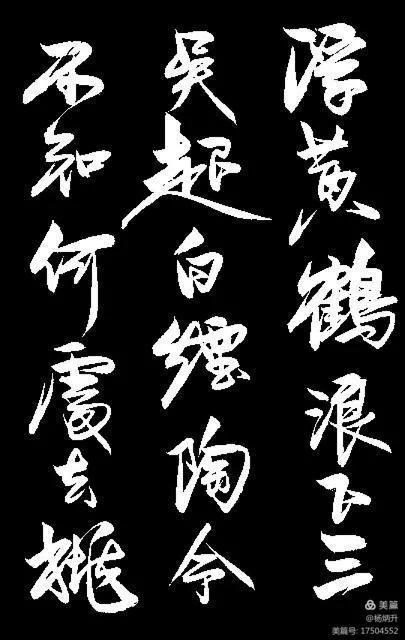 浮黃鶴浪下三
吳起白煙陶令
不知何處去桃
美篇
@杨炳升
美篇号: 17504552